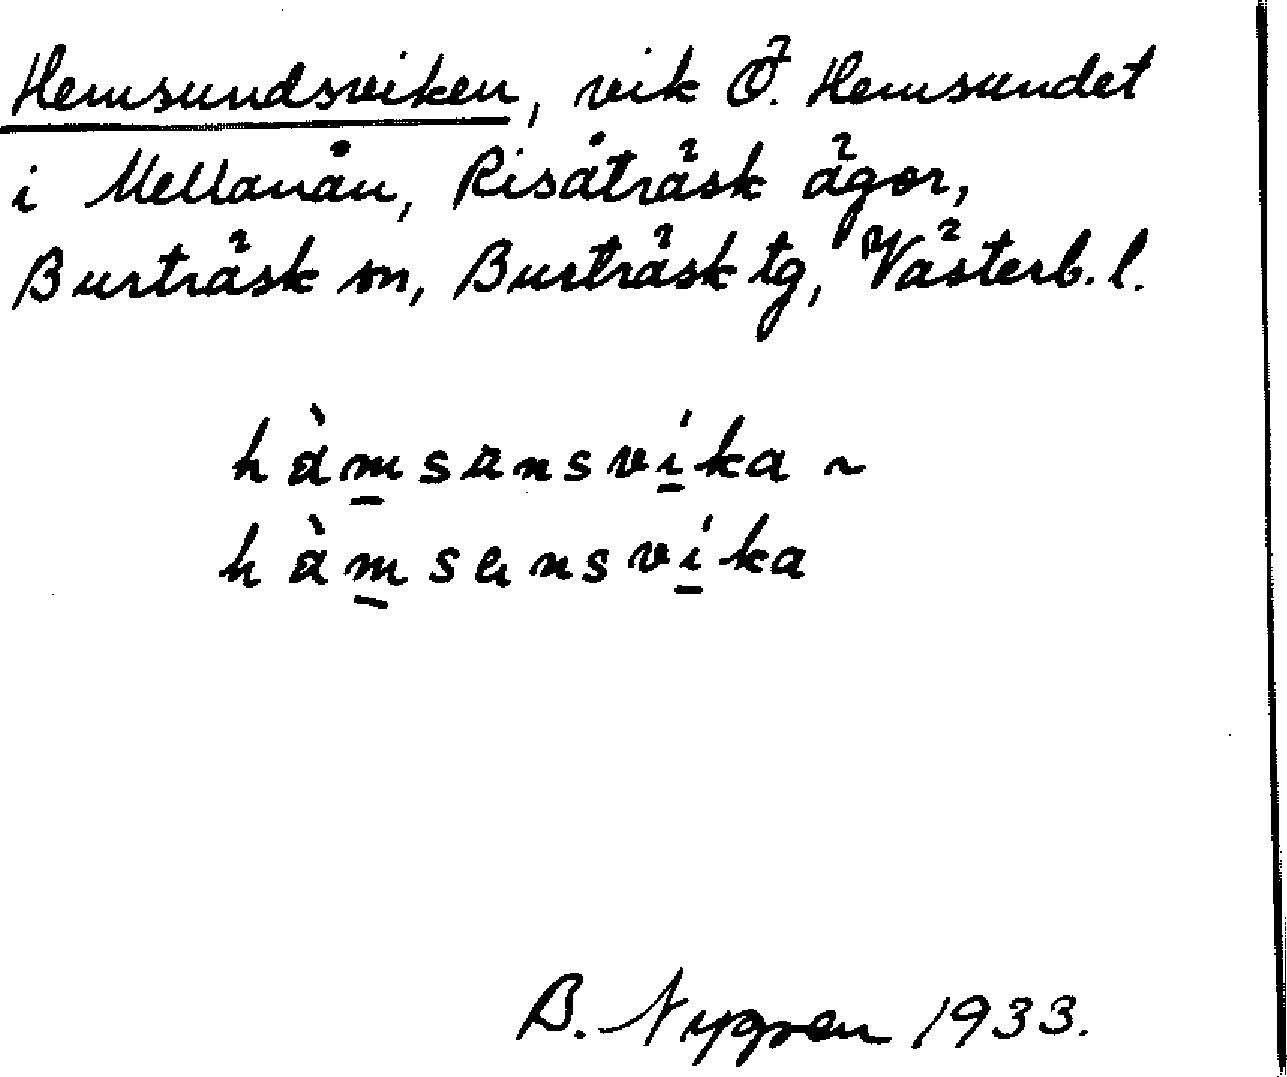 Hemsundsviken, vik Ö. Hemsundet
i Mellanån, Risåträsk ägor,
Burträsk sn, Burträsk tg, Västerb. l.
hàmsansvíka ~
hàmsensvíka
B. Nygren 1933.